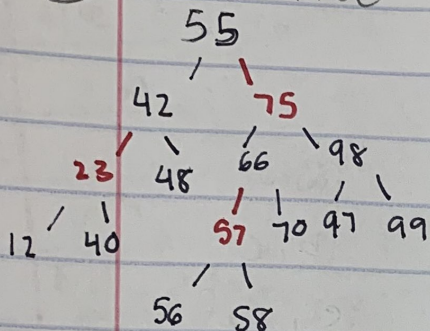 55
42 75
23 48 66 98
12 40 57 70 97 99
56 58